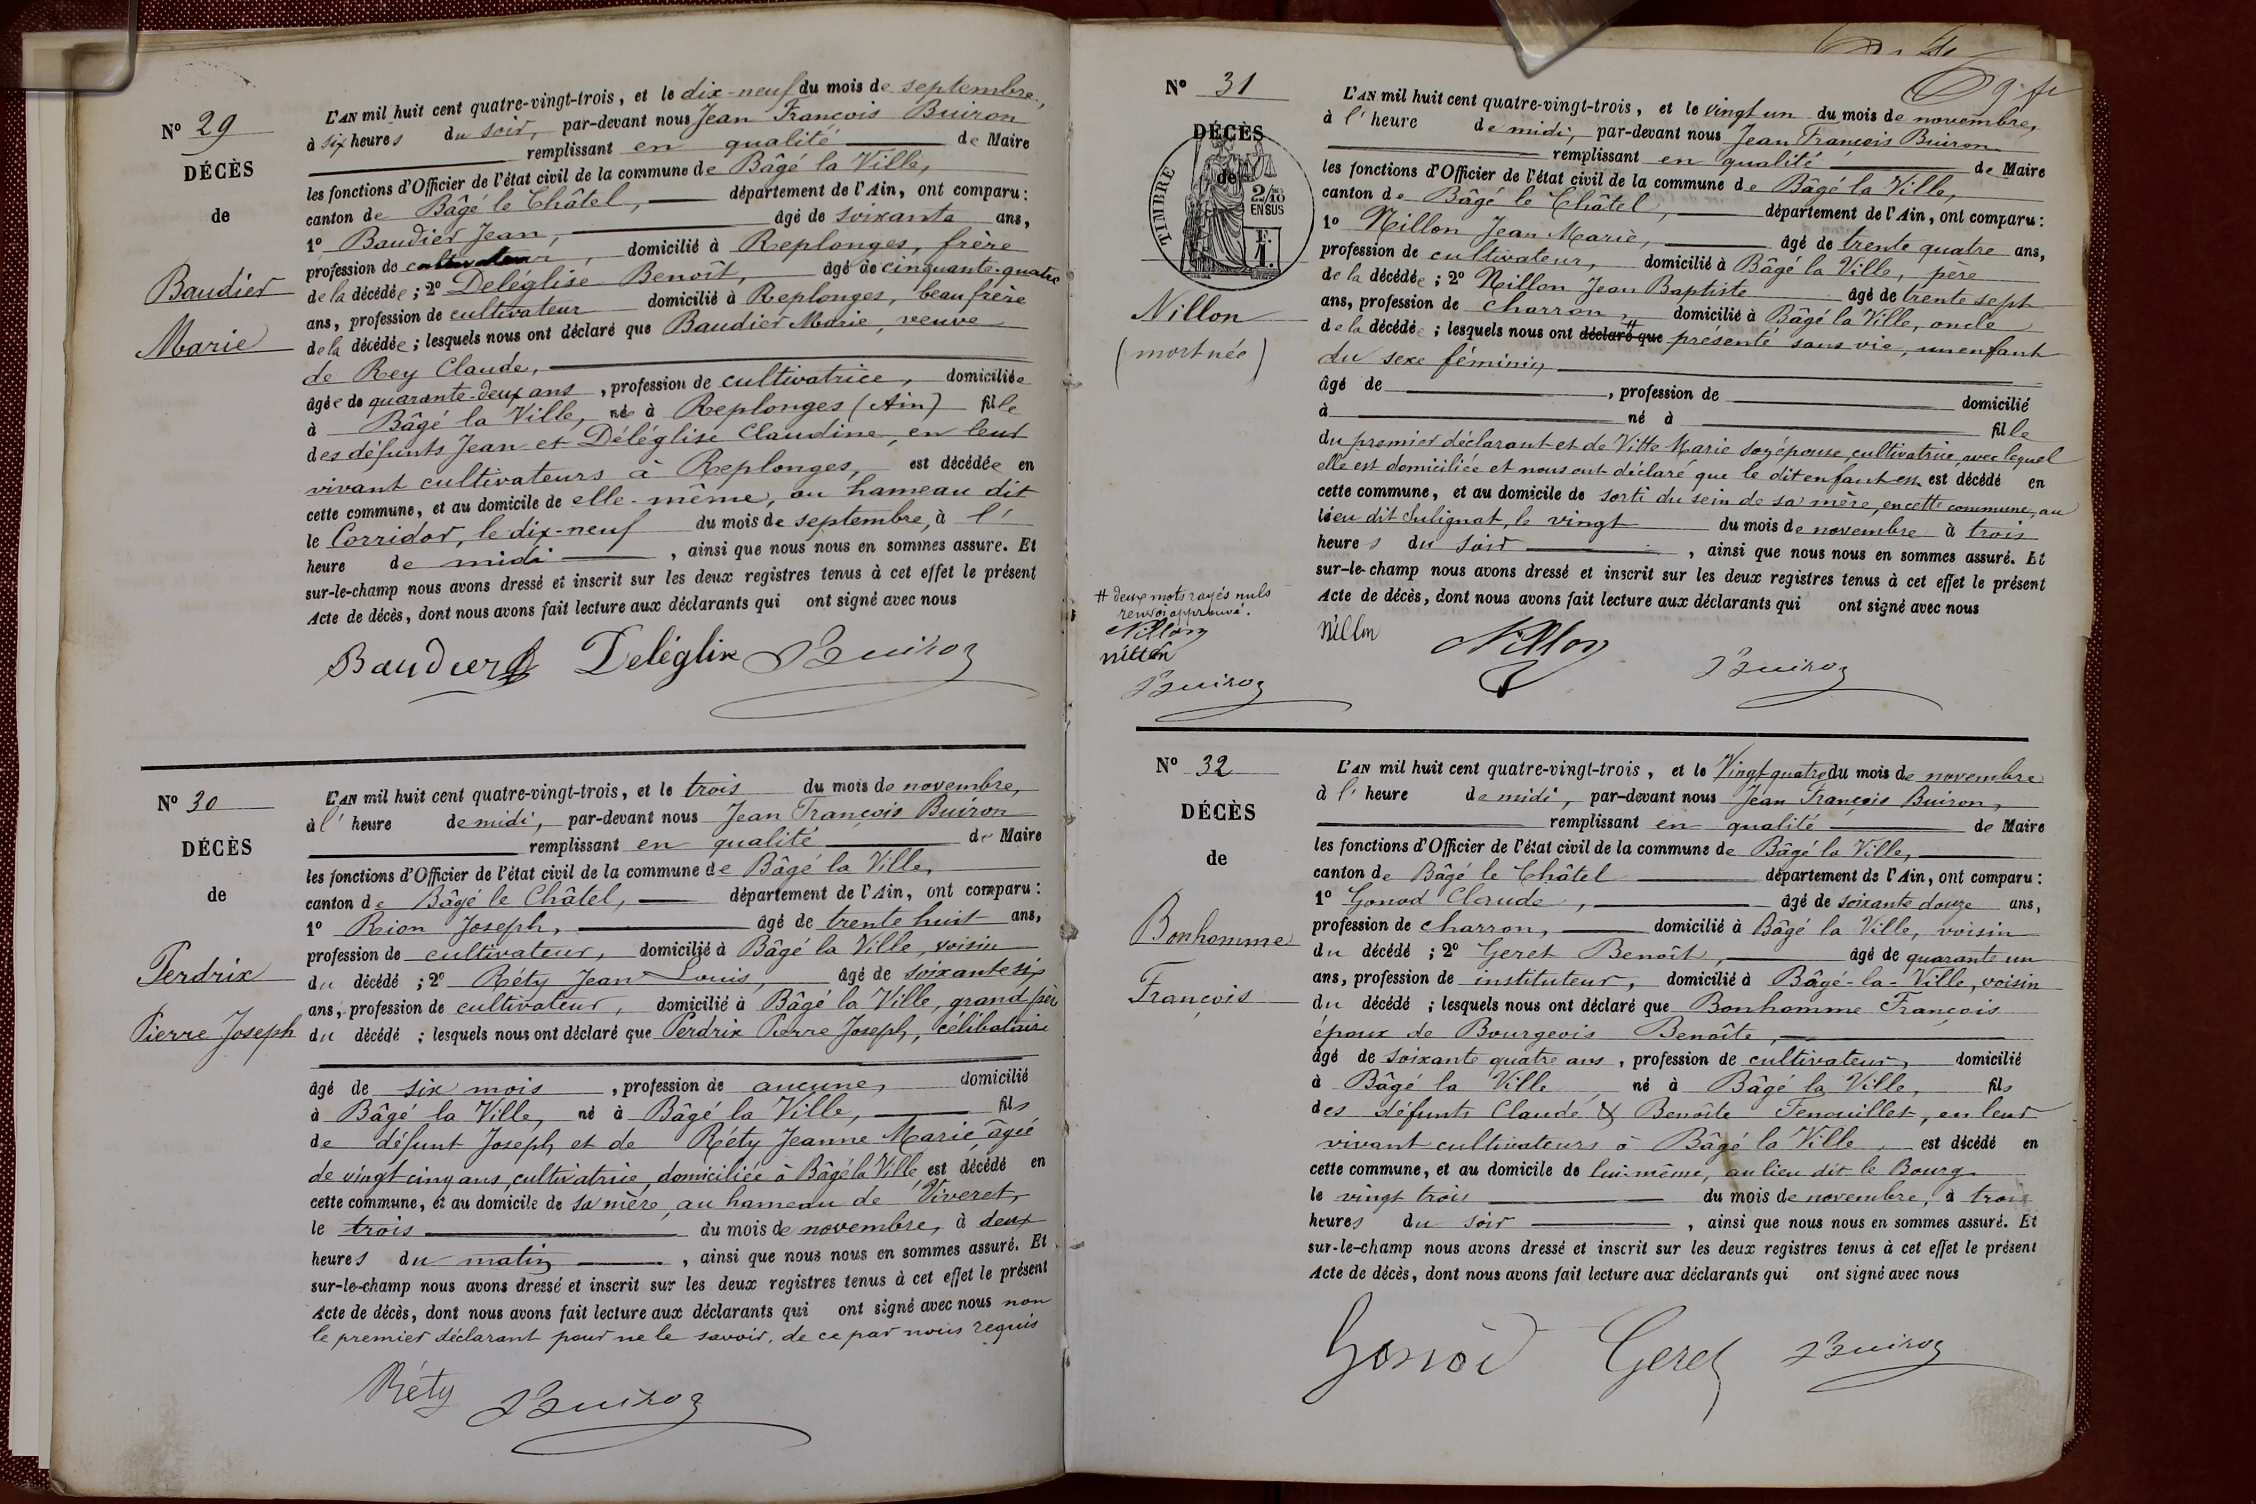 Nº 29
DÉCÈS
de
Baudier
Marie
L'AN mil huit cent quatre-vingt-trois, et le dix-neuf du mois de septembre,
à six heures du soir, par-devant nous Jean François Buiron
remplissant en qualité de Maire
les fonctions d'Officier de l'état civil de la commune de Bâgé la Ville,
canton de Bâgé le Châtel, département de l'Ain, ont comparu :
1º Baudier Jean, âgé de soixante ans,
profession de cultivateur, domicilié à Replonges, frère
de la décédée ; 2º Deléglise Benoît, âgé de cinquante-quatre
ans, profession de cultivateur domicilié à Replonges, beau frère
de la décédée ; lesquels nous ont déclaré que Baudier Marie, veuve
de Rey Claude,
âgée de quarante-deux ans, profession de cultivatrice, domiciliée
à Bâgé la Ville, née à Replonges (Ain) fille
des défunts Jean et Déléglise Claudine, en leur
vivant cultivateurs à Replonges, est décédée en
cette commune, et au domicile de elle-même, au hameau dit
le Corridor, le dix-neuf du mois de septembre, à l'
heure de midi, ainsi que nous nous en sommes assure. Et
sur-le-champ nous avons dressé et inscrit sur les deux registres tenus à cet effet le présent
Acte de décès, dont nous avons fait lecture aux déclarants qui ont signé avec nous
Baudier Deléglise Buiron
Nº 30
DÉCÈS
de
Perdrix
Pierre Joseph
L'AN mil huit cent quatre-vingt-trois, et le trois du mois de novembre,
à l' heure de midi, par-devant nous Jean François Buiron
remplissant en qualité de Maire
les fonctions d'Officier de l'état civil de la commune de Bâgé la Ville,
canton de Bâgé le Châtel, département de l'Ain, ont comparu :
1º Rion Joseph, âgé de trente huit ans,
profession de cultivateur, domicilié à Bâgé la Ville, voisin
du décédé ; 2º Réty Jean Louis, âgé de soixante six
ans, profession de cultivateur, domicilié à Bâgé la Ville, grand père
du décédé ; lesquels nous ont déclaré que Perdrix Pierre Joseph, célibataire
âgé de six mois, profession de aucune, domicilié
à Bâgé la Ville, né à Bâgé la Ville, fils
de défunt Joseph et de Réty Jeanne Marie, âgée
de vingt cinq ans, cultivatrice, domiciliée à Bâgé la Ville, est décédé en
cette commune, et au domicile de sa mère, au hameau de Viveret,
le trois du mois de novembre, à deux
heures du matin, ainsi que nous nous en sommes assuré. Et
sur-le-champ nous avons dressé et inscrit sur les deux registres tenus à cet effet le présent
Acte de décès, dont nous avons fait lecture aux déclarants qui ont signé avec nous non
le premier déclarant pour ne le savoir, de ce par nous requis
Réty Buiron
Nº 31
DÉCÈS
de
TIMBRE
2/10
EN SUS
F.
1.
Nillon
(mort née)
L'AN mil huit cent quatre-vingt-trois, et le vingt un du mois de novembre,
à l' heure de midi, par-devant nous Jean François Buiron
remplissant en qualité de Maire
les fonctions d'Officier de l'état civil de la commune de Bâgé la Ville,
canton de Bâgé le Châtel, département de l'Ain, ont comparu :
1º Nillon Jean Marie, âgé de trente quatre ans,
profession de cultivateur, domicilié à Bâgé la Ville, père
de la décédée ; 2º Nillon Jean Baptiste âgé de trente sept
ans, profession de charron, domicilié à Bâgé la Ville, oncle
de la décédée ; lesquels nous ont # déclaré que présenté sans vie, un enfant
du sexe féminin
âgé de , profession de domicilié
à né à fille
du premier déclarant et de Vitte Marie son épouse, cultivatrice, avec lequel
elle est domiciliée et nous ont déclaré que le dit enfant est décédé en
cette commune, et au domicile de sorti du sein de sa mère, en cette commune, au
lieu dit Chulignat, le vingt du mois de novembre à trois
heures du soir, ainsi que nous nous en sommes assuré. Et
sur-le-champ nous avons dressé et inscrit sur les deux registres tenus à cet effet le présent
Acte de décès, dont nous avons fait lecture aux déclarants qui ont signé avec nous
# deux mots rayés nuls
renvoi approuvé.
Nillon
nillon
Buiron
nillon Nillon Buiron
Nº 32
DÉCÈS
de
Bonhomme
François
L'AN mil huit cent quatre-vingt-trois, et le Vingt-quatre du mois de novembre
à l' heure de midi, par-devant nous Jean François Buiron,
remplissant en qualité de Maire
les fonctions d'Officier de l'état civil de la commune de Bâgé la Ville,
canton de Bâgé le Châtel département de l'Ain, ont comparu :
1º Gonod Claude, âgé de soixante douze ans,
profession de charron, domicilié à Bâgé la Ville, voisin
du décédé ; 2º Geret Benoît, âgé de quarante un
ans, profession de instituteur, domicilié à Bâgé-la-Ville, voisin
du décédé ; lesquels nous ont déclaré que Bonhomme François
époux de Bourgeois Benoîte,
âgé de soixante quatre ans, profession de cultivateur, domicilié
à Bâgé la Ville né à Bâgé la Ville, fils
des défunts Claude & Benoîte Fenouillet, en leur
vivant cultivateurs à Bâgé la Ville, est décédé en
cette commune, et au domicile de lui-même, au lieu dit le Bourg
le vingt trois du mois de novembre, à trois
heures du soir, ainsi que nous nous en sommes assuré. Et
sur-le-champ nous avons dressé et inscrit sur les deux registres tenus à cet effet le présent
Acte de décès, dont nous avons fait lecture aux déclarants qui ont signé avec nous
Gonod Geret Buiron